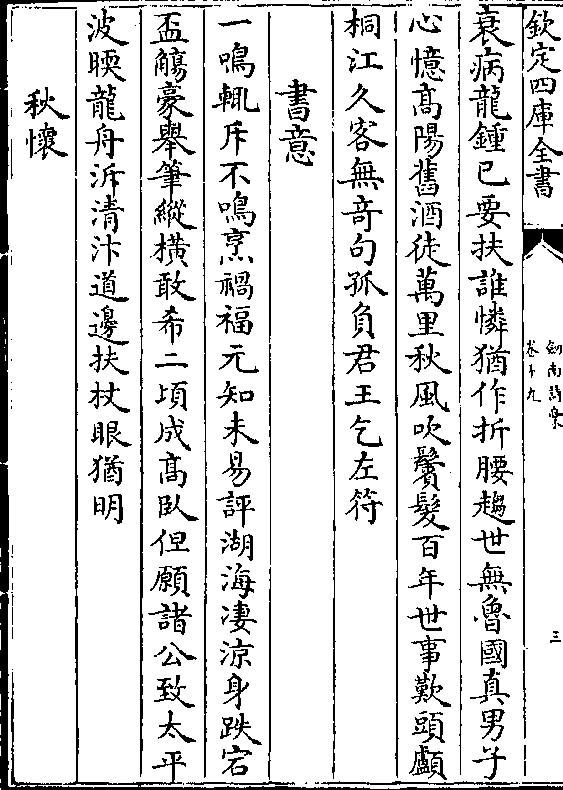 欽定四庫全書
劒南詩槀
卷十九
三
衰病龍鍾已要扶誰憐猶作折腰趨世無魯國真男子
心憶髙陽舊酒徒萬里秋風吹鬢髮百年世事歎頭顱
桐江久客無竒句孤負君王乞左符
書意
一鳴輒斥不鳴烹禍福元知未易評湖海凄涼身跌宕
盃觴豪舉筆縱横敢希二頃成髙臥但願諸公致太平
波暖龍舟泝清汴道邊扶杖眼猶明
秋懷